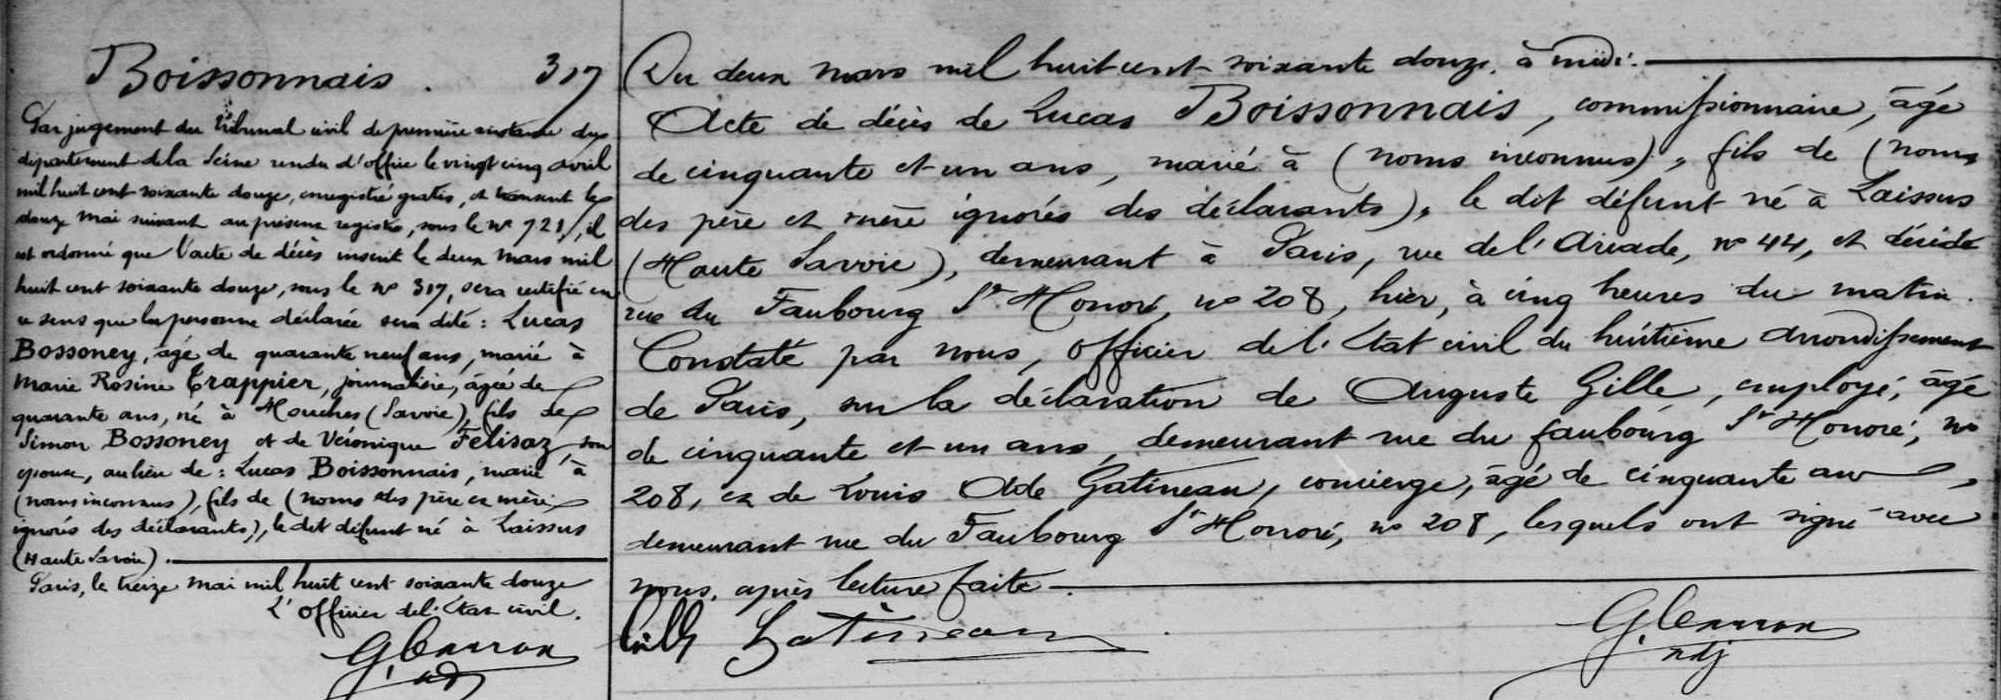 Boissonnais. 317
Par jugement du Tribunal civil de première instance du
département de la Seine rendu d'office le vingt cinq avril
mil huit cent soixante douze, enregistré gratis, et transcrit le
douze mai suivant au présent registre, sous le n° 721, il
est ordonné que l'acte de décès inscrit le deux mars mil
huit cent soixante douze, sous le n° 317, sera rectifié en
ce sens que la personne déclarée sera dite : Lucas
Bossoney, âgé de quarante neuf ans, marié à
Marie Rosine Trappier, journalière, âgée de
quarante ans, né à Houches (Savoie), fils de
Simon Bossoney et de Véronique Felisaz, son
épouse, au lieu de : Lucas Boissonnais, marié à
(noms inconnus), fils de (noms des père et mère
ignorés des déclarants), le dit défunt né à Laissus
(Haute Savoie).
Paris, le treize mai mil huit cent soixante douze
L'officier de l'état civil.
adj
Du deux mars mil huit cent soixante douze, à midi.
Acte de décès de Lucas Boissonnais, commissionnaire, âgé
de cinquante et un ans, marié à (noms inconnus), fils de (noms
des père et mère ignorés des déclarants), le dit défunt né à Laissus
(Haute Savoie), demeurant à Paris, rue de l'Arcade, n° 44, et décédé
rue du Faubourg St Honoré, n° 208, hier, à cinq heures du matin.
Constaté par nous, officier de l'état civil du huitième arrondissement
de Paris, sur la déclaration de Auguste Gille, employé, âgé
de cinquante et un ans, demeurant rue du faubourg St Honoré, n°
208, et de Louis Gatineau, concierge, âgé de cinquante ans,
demeurant rue du Faubourg St Honoré, n° 208, lesquels ont signé avec
nous, après lecture faite.
Gille Gatineau
adj